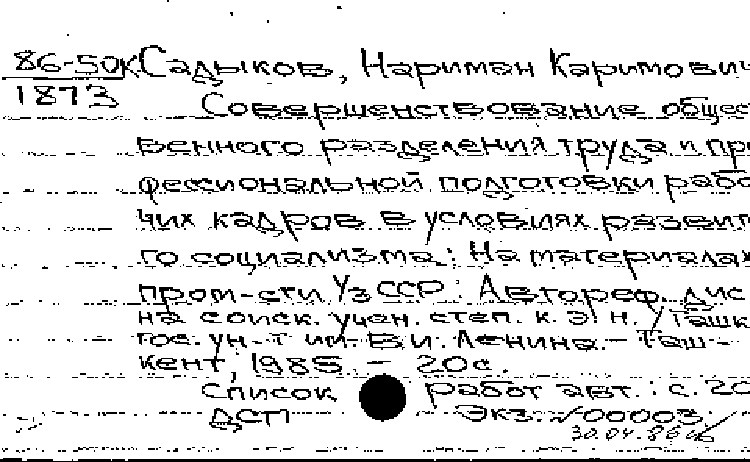 86-50К Садыков, Нариман Каримович
1873
Совершенствование общест
венного разделения труда и про
фессиональной подготовки рабо
чих кадров в условиях развито
го социализма: На материалах
пром-сти УзССР: Автореф. дис
на соиск. учен. степ. к. э. н. / Ташк
гос. ун-т им. В.И. Ленина. - Таш-
кент, 1985. - 20с.
Список работ авт.: с. 20
ДСП Экз. №00003
30.04.86